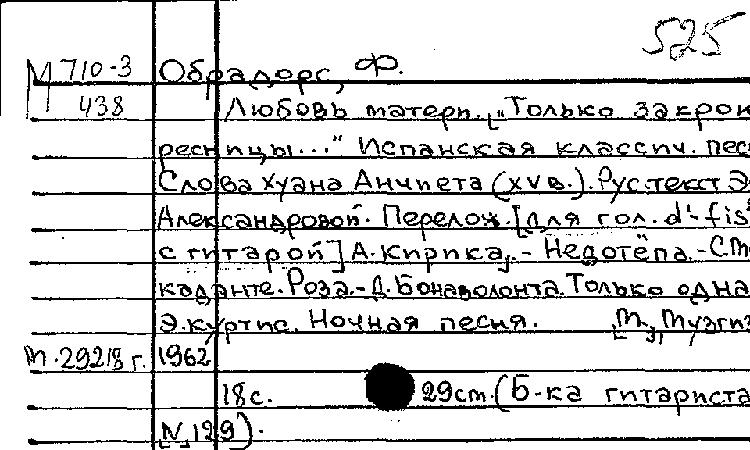 525
М 710-3 Обрадорс, Ф.
438 Любовь матери. "Только закрои
ресницы..." Испанская классич. пес
Слова Хуана Анчиета (XV в.). Рус. текст Э.
Александровой. Перелож. [для гол. d'-fis
с гитарой] А. Кирика. - Недотёпа. - С.М
каданте. Роза. - Д. Бонаволонта. Только одна
Э. Куртис. Ночная песня. М., Музгиз
М. 29218 г. 1962
18с. 29см. (Б-ка гитариста
N 129).